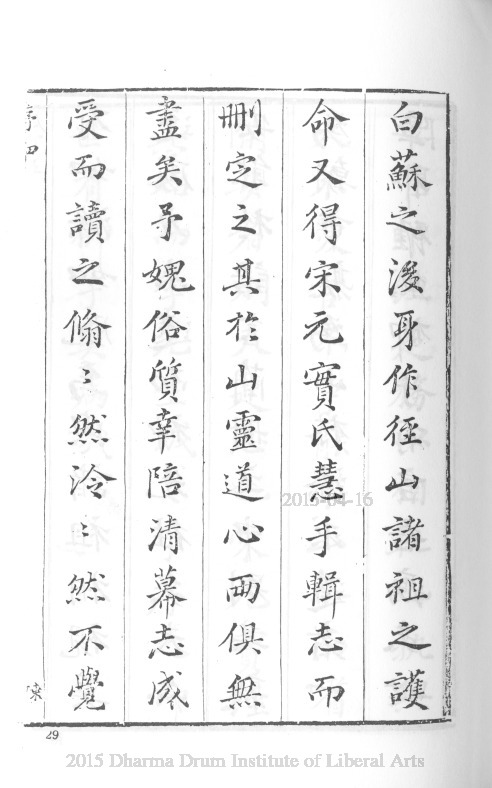 白蘇之後身作徑山諸祖之護
命又得宋元實氏慧手輯志而
刪定之其於山靈道心兩俱無
盡矣予媿俗質幸陪清幕志成
受而讀之翛〻然泠〻然不覺
29
2015-04-16
2015 Dharma Drum Institute of Liberal Arts